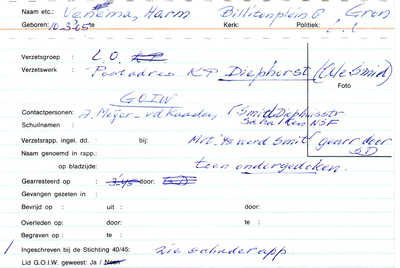 Naam etc.: Venema, Harm Billitonplein 8 Gron
Geboren: 10-3-05 te Kerk: Politiek: ! !
Verzetsgroep : L.O. KP
Verzetswerk : Postadres KP Diephorst (Ale Smid)
Foto
G.O.I.W
Contactpersonen: A. Meijer - vd Kaaden, T Smid Diephuisstr
Schuilnaam : NSF
Verzetsrapp. ingel. dd. : bij: Mrt. '45 werd Smit gearr door
Naam genoemd in rapp.: SD
op bladzijde: toen ondergedoken.
Gearresteerd op : 3-45 door: SD
Gevangen gezeten in :
Bevrijd op : uit : door:
Overleden op : door: te :
Begraven op : te :
Ingeschreven bij de Stichting 40/45: zie rapp
Lid G.O.I.W. geweest: Ja / Neen